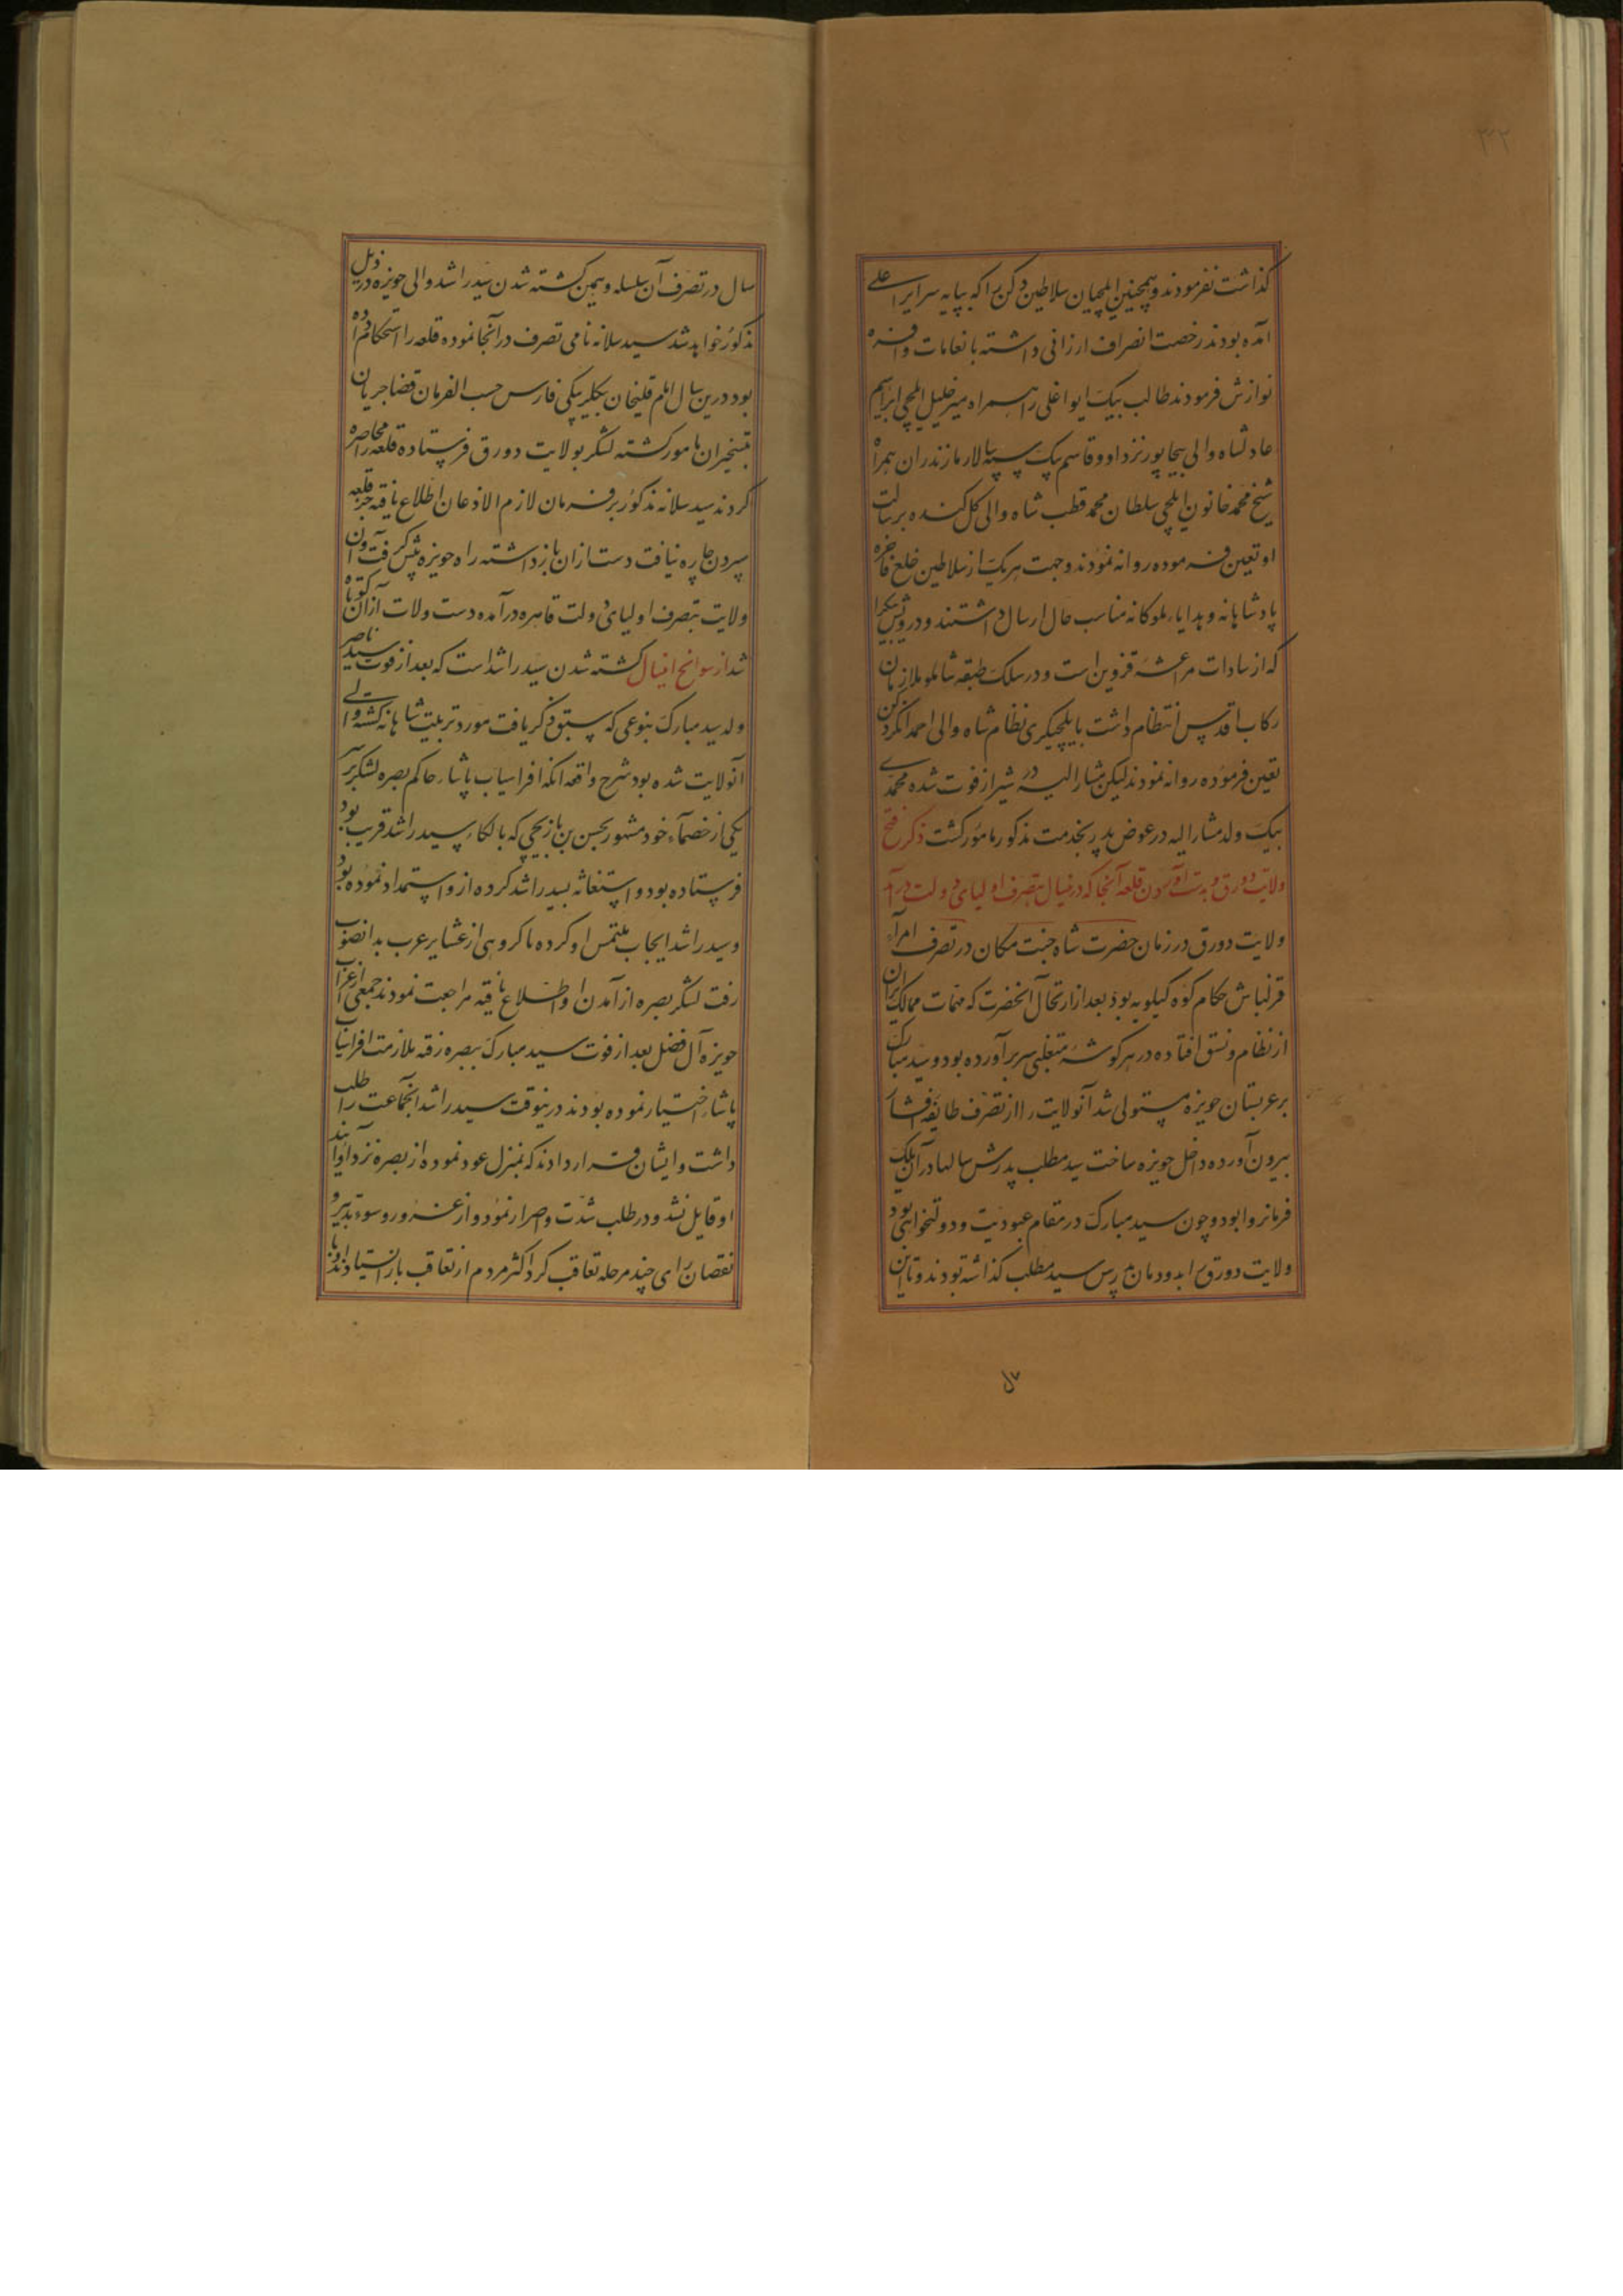 ۳۲
گذاشت نفرمودند و همچنین ایلچیان سلاطین دکن را که بپایه سریر اعلی
آمده بودند رخصت انصراف ارزانی داشته بانعامات وافره
نوازش فرمودند طالب بیک ایواغلی را همراه میر خلیل ایلچی ابراهیم
عادلشاه والی بیجاپور نزد او و قاسم بیک سپهسالار مازندران همراه
شیخ محمد خاتون ایلچی سلطان محمد قطب شاه والی کلکنده برسالت
او تعین فرموده روانه نمودند و جهت هر یک از سلاطین خلع فاخره
پادشاهانه و هدایاء ملوکانه مناسب حال ارسال داشتند و درویش بیکرا
که از سادات مرعشیه قزوین است و در سلک طبقه شاملو ملازمان
رکاب اقدس انتظام داشت بایلچیکری نظام شاه والی احمد انکر دکن
تعین فرموده روانه نمودند لیکن مشار الیه در شیراز فوت شده محمدی
بیک ولد مشارالیه در عوض پدر بخدمت مذکور مامور کشت ذکر فتح
ولایت دورق و بدست آوردن قلعه آنجا که درینسال بتصرف اولیای دولت درآمد
ولایت دورق در زمان حضرت شاه جنت مکان در تصرف امرآء
قزلباش حکام کوه کیلویه بود بعد از ارتحال آنحضرت که مهمات ممالک ایران
از نظام و نسق افتاده در هر کوشه متغلبی سر برآورده بود و سید مبارک
بر عربستان حویزه مستولی شد آنولایت را از تصرف طایفه افشار
بیرون آورده داخل حویزه ساخت سید مطلب پدرش سالها در آن ملک
فرمانروا بود و چون سید مبارک در مقام عبودیت و دولتخواهی بود
ولایت دورق را بدودمان پدرش سید مطلب کذاشته بودند و تا این
سال در تصرف آن سلسله و بیمن کشته شدن سید راشد والی حویزه در ذیل
مذکور خواهد شد سید سلانه نامی تصرف در آنجا نموده قلعه را استحکام داده
بود درین سال امام قلیخان بیکلربیکی فارس حسب الفرمان قضا جریان
بتسخیر آن مامور کشته لشکر بولایت دورق فرستاده قلعه را محاصره
کردند سید سلانه مذکور بر فرمان لازم الاذعان اطلاع یافته جز قلعه
سپردن چاره نیافت دست از آن باز داشته راه حویزه پیش کرفت و آن
ولایت بتصرف اولیای دولت قاهره درآمده دست ولات از آن کوتاه
شد از سوانح اینسال کشته شدن سید راشد است که بعد از فوت سید ناصر
ولد سید مبارک بنوعی که سبق ذکر یافت مورد تربیت شاهانه کشته والی
آنولایت شده بود شرح واقعه آنکه افراسیاب پاشاء حاکم بصره لشکر بر سر
یکی از خصماء خود مشهور بحسن بن باز یحیی که بالکاء سید راشد قریب بود
فرستاده بود و استغاثه بسید راشد کرده از و استمداد نموده بود
و سید راشد ایجاب ملتمس او کرده با کروهی از عشایر عرب بدانصوب
رفت لشکر بصره از آمدن او اطلاع یافته مراجعت نمودند جمعی از اعراب
حویزه آل فضل بعد از فوت سید مبارک ببصره رفته ملازمت افراسیاب
پاشا اختیار نموده بودند در ینوقت سید راشد آنجماعت را طلب
داشت و ایشان قرار دادند که بمنزل عود نموده از بصره نزد او آیند
او قایل نشد و در طلب شدت و اصرار نمود و از غرور و سوء تدبیر و
نقصان رای چند مرحله تعاقب کرد اکثر مردم از تعاقب باز ایستادند و با